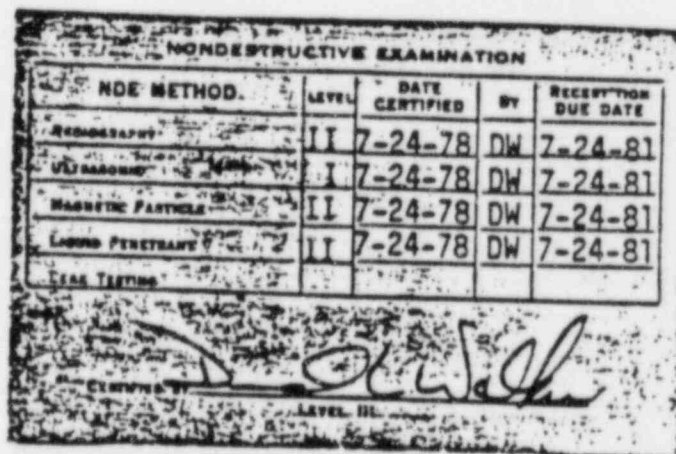 NONDESTRUCTIVE EXAMINATION
NDE METHOD. LEVEL DATE CERTIFIED BY RECERT'TION DUE DATE
RADIOGRAPHY II 7-24-78 DW 7-24-81
ULTRASONIC I 7-24-78 DW 7-24-81
MAGNETIC PARTICLE II 7-24-78 DW 7-24-81
LIQUID PENETRANT II 7-24-78 DW 7-24-81
LEAK TESTING
CERTIFIED BY
LEVEL III